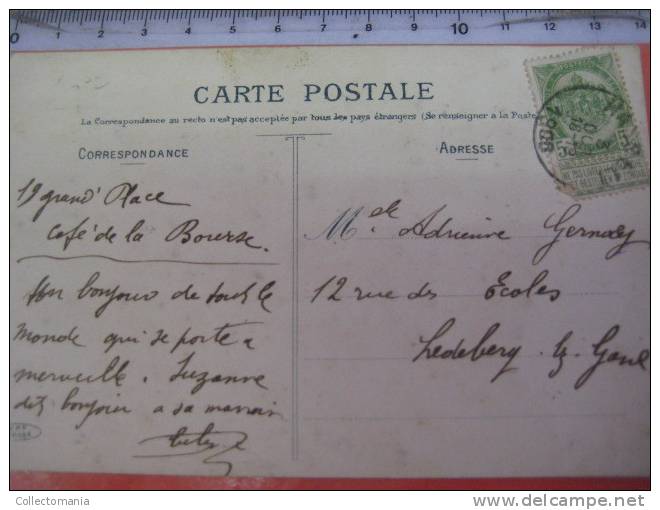 0 1 2 3 4 5 6 7 8 9 10 11 12 13 14
CARTE POSTALE
La Correspondance au recto n'est pas acceptée par tous les pays étrangers (Se renseigner à la Poste
CORRESPONDANCE
ADRESSE
19 grand' Place
Café de la Bourse.
Un bonjour de tout le
monde qui se porte a
merveille. Suzanne
dit bonjour a sa
Melle Adrienne Gernaey
12 rue des Ecoles
Ledeberg lz Gand
1908
Collectomania
delcampe.net